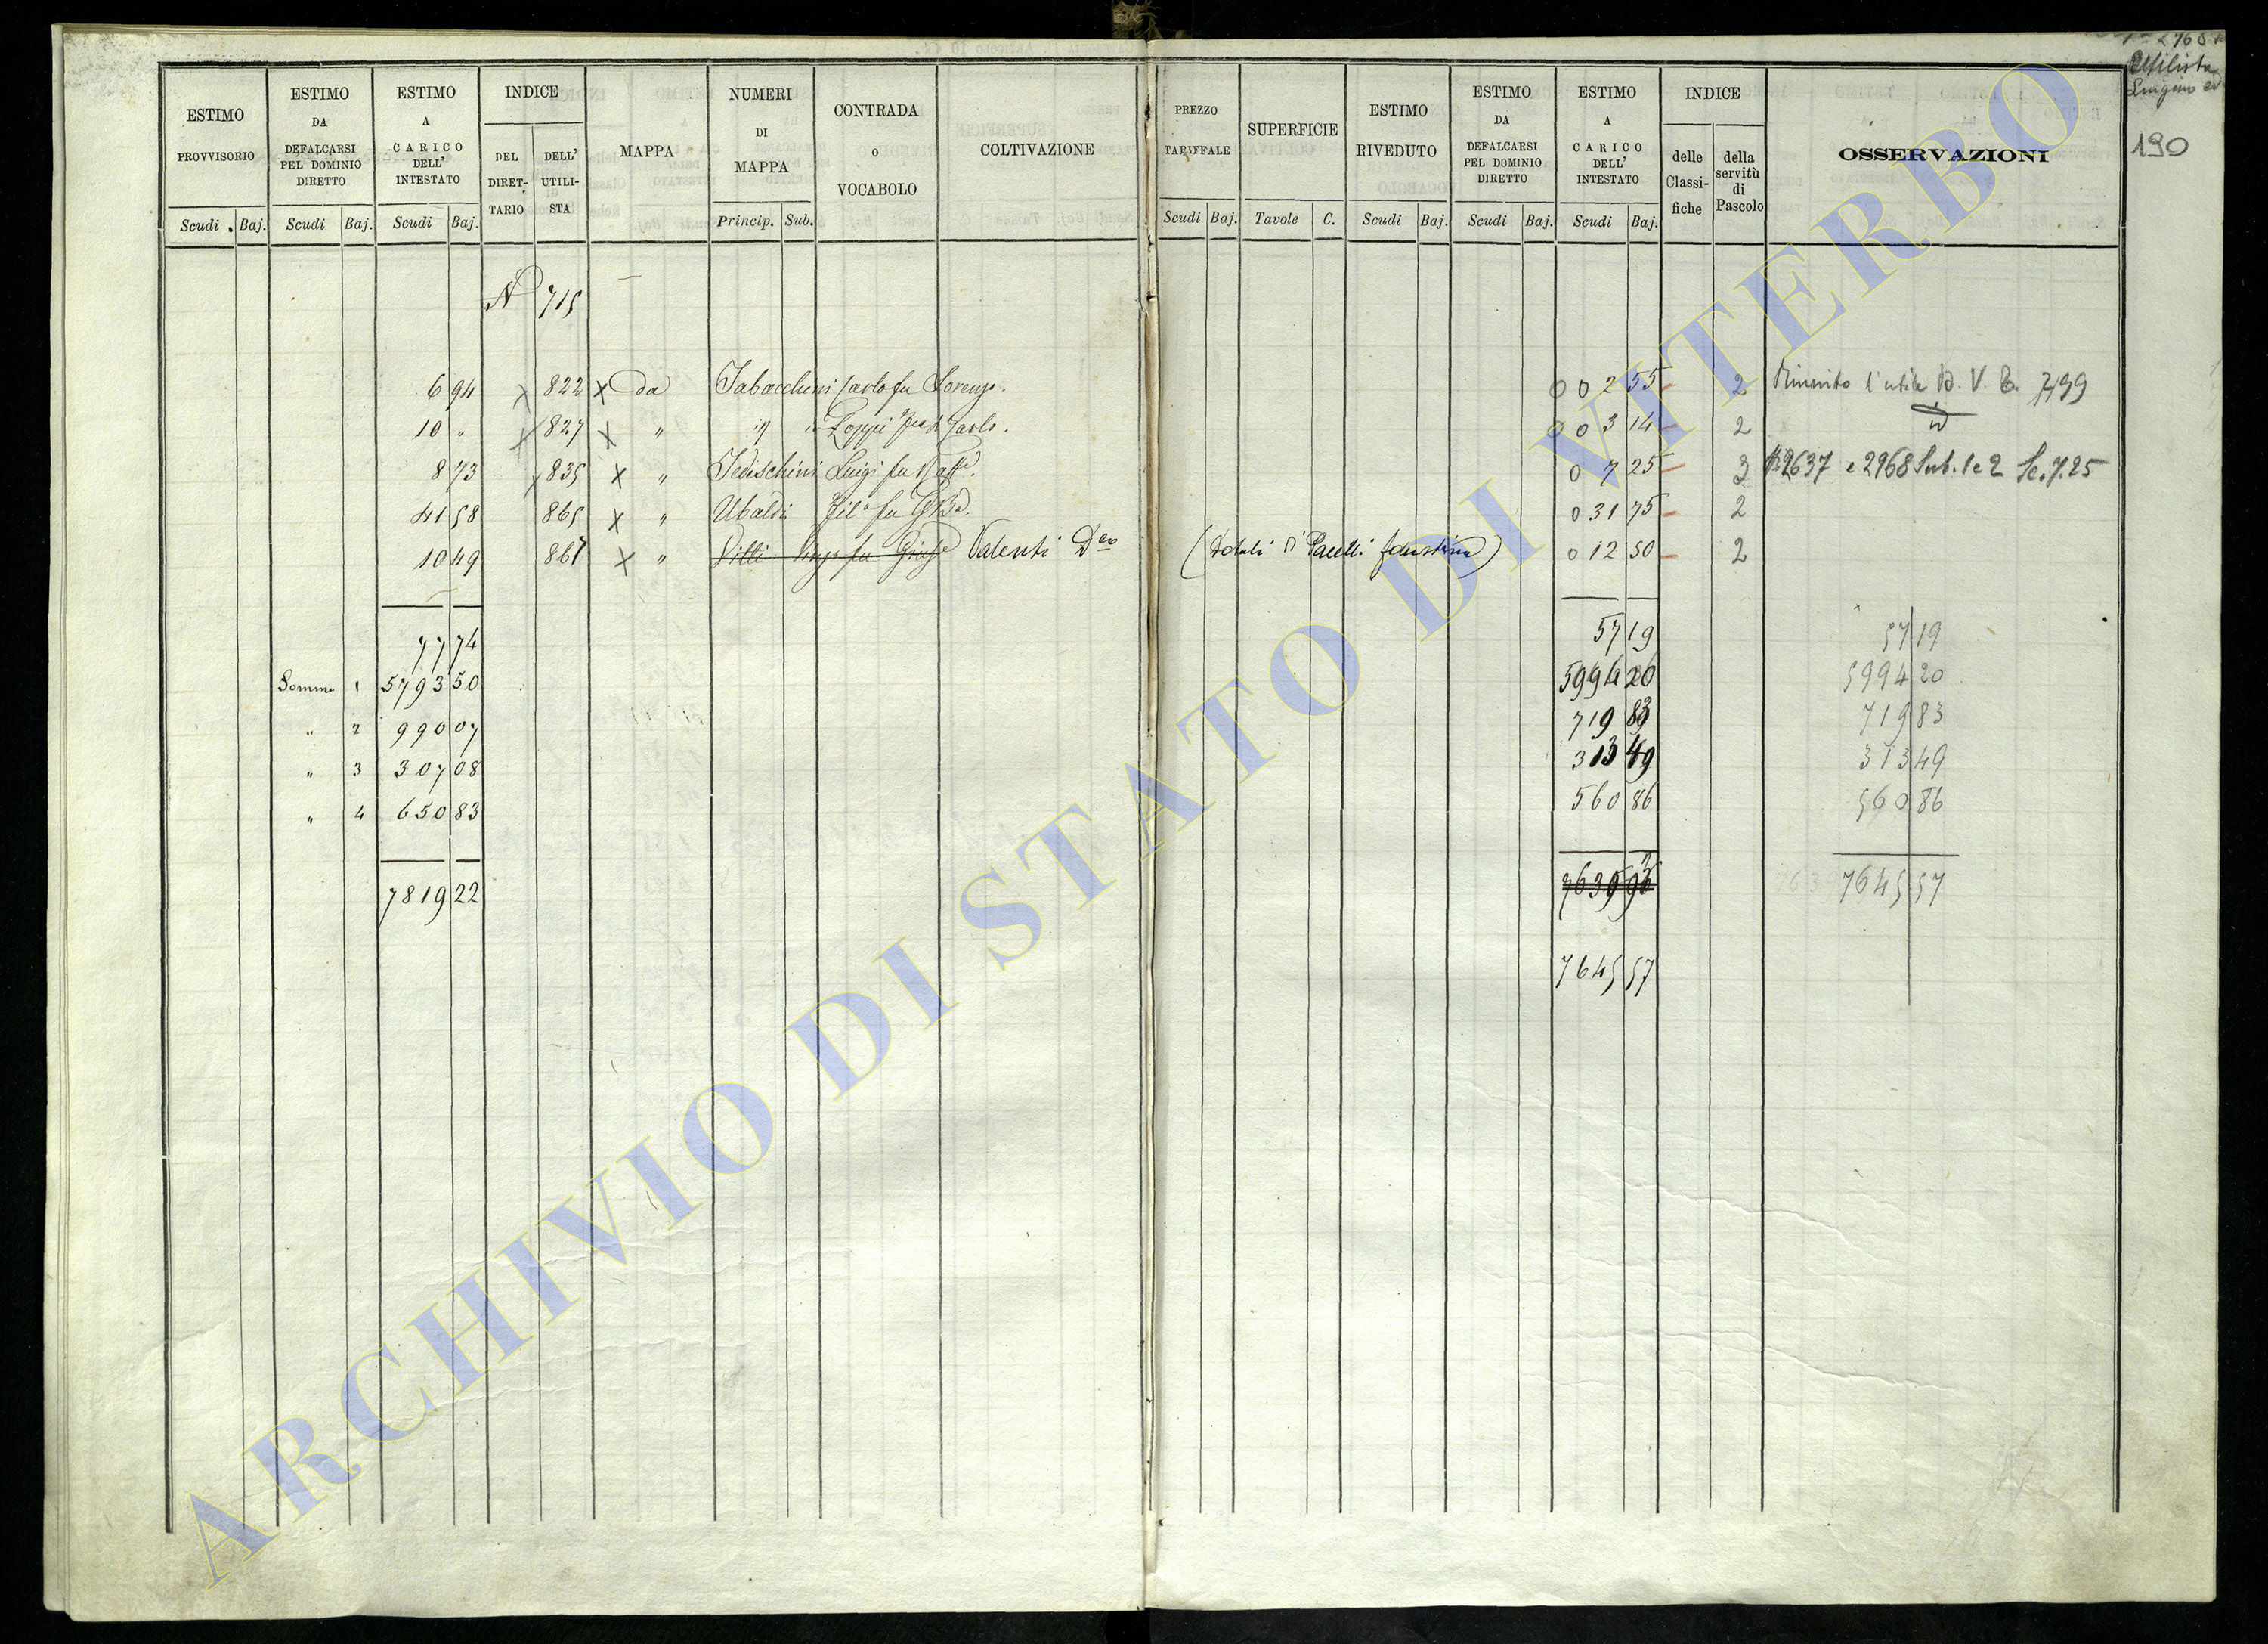 ESTIMO PROVVISORIO
ESTIMO DA DEFALCARSI PEL DOMINIO DIRETTO
ESTIMO A CARICO DELL' INTESTATO
INDICE
DEL DIRET-TARIO
DELL' UTILI-STA
MAPPA
NUMERI DI MAPPA
CONTRADA O VOCABOLO
COLTIVAZIONE
PREZZO TARIFFALE
SUPERFICIE
ESTIMO RIVEDUTO
ESTIMO DA DEFALCARSI PEL DOMINIO DIRETTO
ESTIMO A CARICO DELL' INTESTATO
INDICE
delle Classi-fiche
della servitù di Pascolo
OSSERVAZIONI
190
Scudi Baj. Scudi Baj. Scudi Baj. Princip. Sub. Scudi Baj. Tavole C. Scudi Baj. Scudi Baj. Scudi Baj.
N 715
6 94 822 x da Tabacchini Carlo fu Lorenzo. 0 0 2 55 2 l'utile 7499
10 " 827 x " Carlo. 0 0 3 14 2
8 73 835 x " Tedischini Luigi fu 0 7 25 3 2637 e 2968 Sub. 1 e 2 Sc. 7.25
41 58 865 x " Ubaldi fu 0 31 75 2
10 49 867 x " Valenti (dotali di Pacelli Faustina) 0 12 50 2
77 74 57 19 57 19
Somma 1 5793 50 5994 20 5994 20
" 2 990 07 719 83 719 83
" 3 307 08 313 49 313 49
" 4 650 83 560 86 560 86
7819 22 7645 57
7645 57
ARCHIVIO DI STATO DI VITERBO